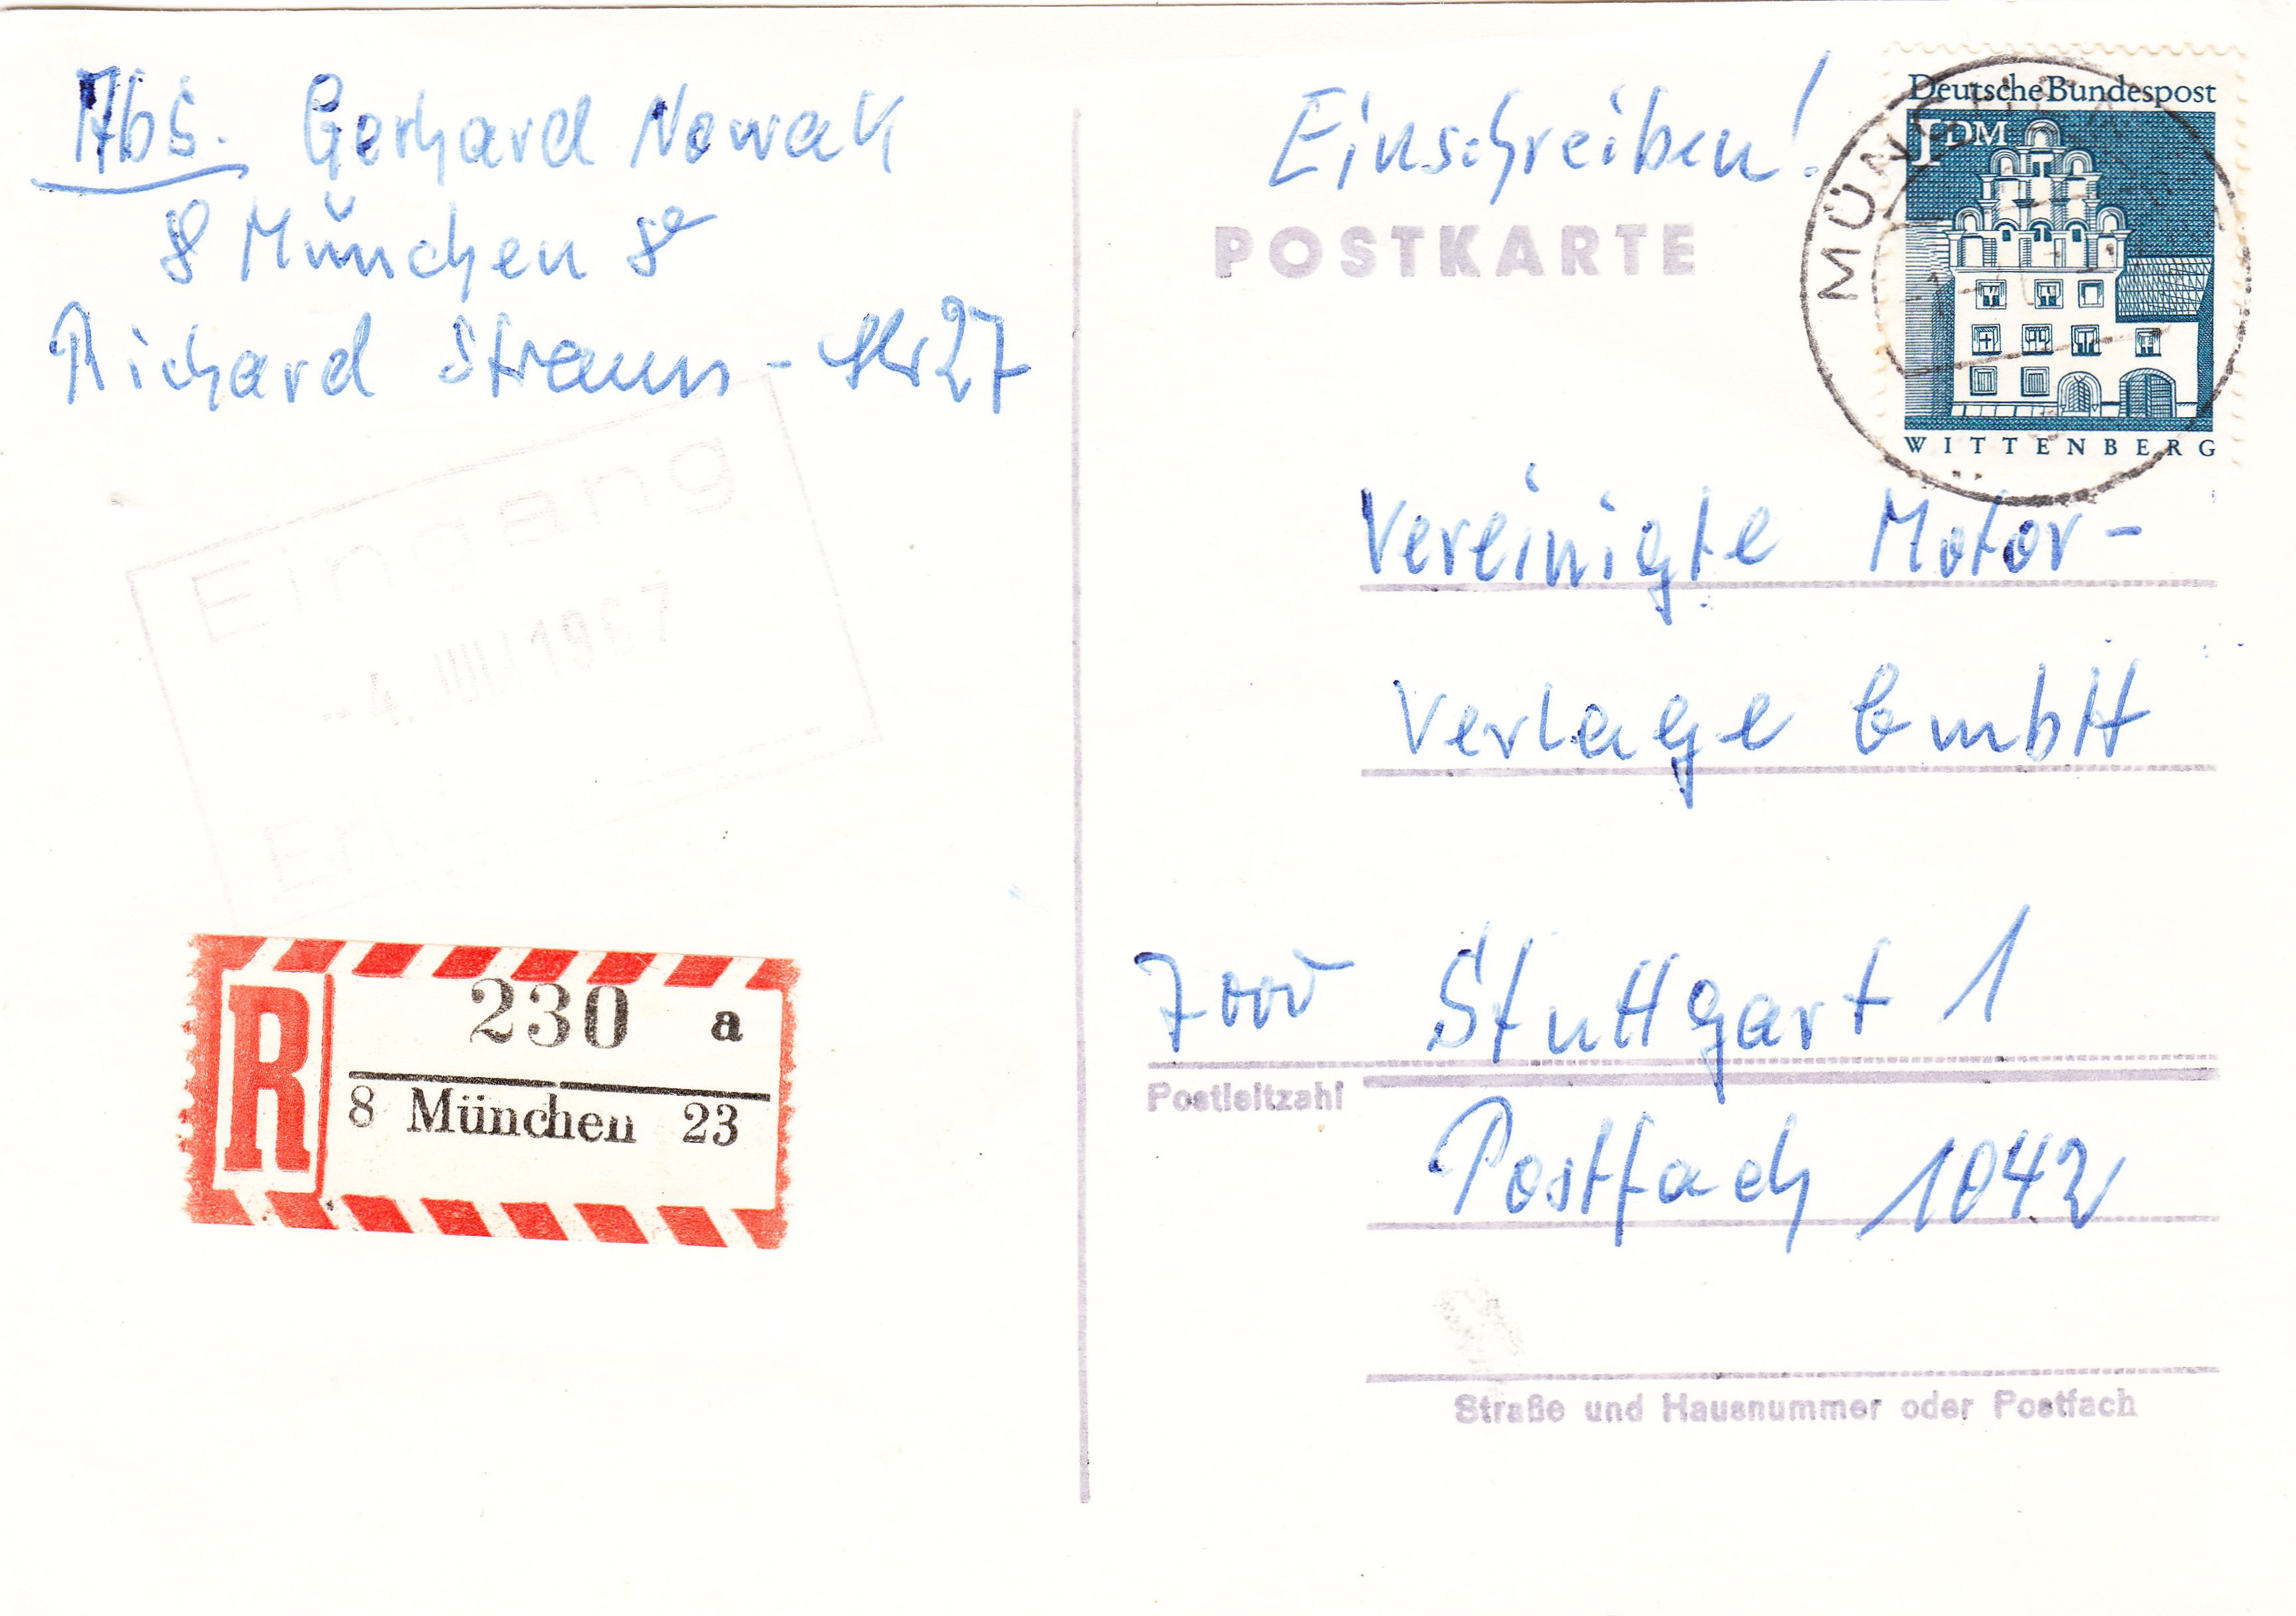 Abs. Gerhard Nowak
8 München 80
Richard Strauss - Str 27
Eingang
-4. JULI 1967
230 a
R
8 München 23
Einschreiben!
POSTKARTE
Deutsche Bundespost
1 DM
WITTENBERG
MÜN
Vereinigte Motor-
Verlage GmbH
7000 Stuttgart 1
Postleitzahl
Postfach 1042
Straße und Hausnummer oder Postfach